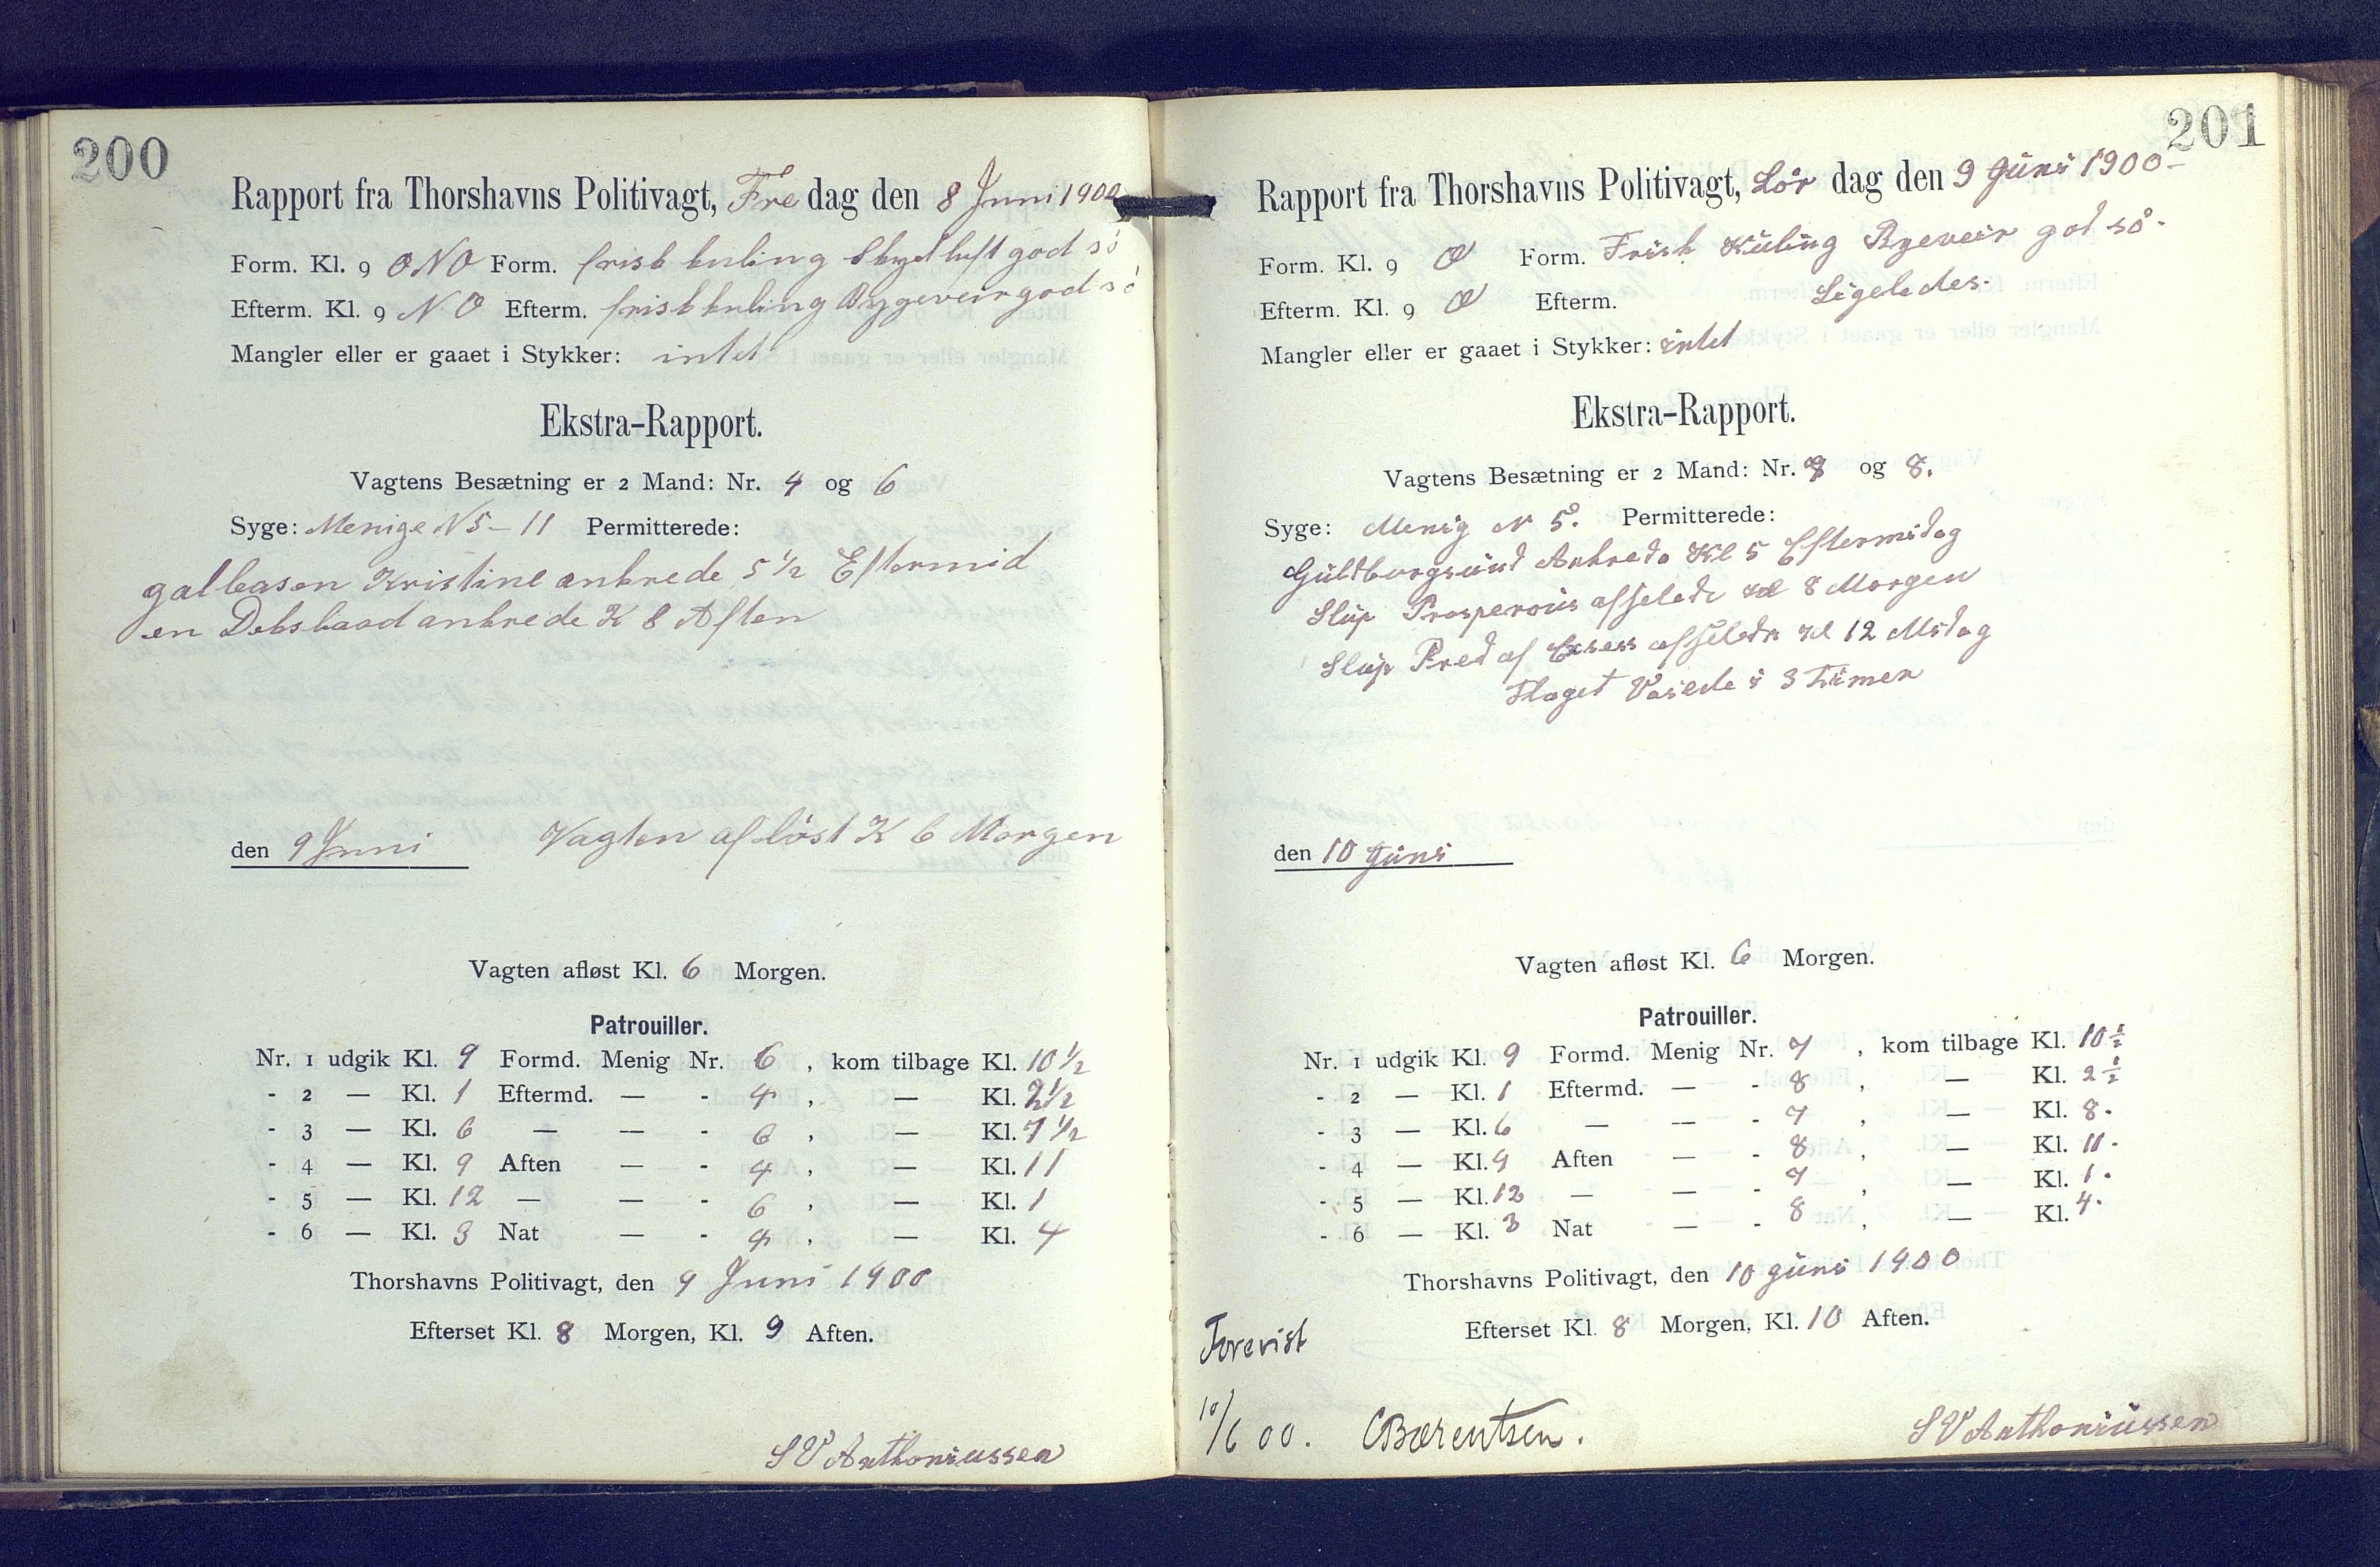 200
Rapport fra Thorshavns Politivagt, Fre dag den 8 Juni 1900
Form. Kl. 9 ONO Form. frisk kuling Skyet luft god sö
Efterm. Kl. 9 NO Efterm. frisk kuling Bygeveir god sö
Mangler eller er gaaet i Stykker: intet
Ekstra-Rapport.
Vagtens Besætning er 2 Mand: Nr. 4 og 6
Syge: Menige N 5 – 11 Permitterede:
galleasen Kristine ankrede 5 ½ Eftermid
en Deksbaad ankrede K 8 Aften
den 9 Juni Vagten aflöst K 6 Morgen
Vagten afløst Kl. 6 Morgen.
Patrouiller.
Nr. 1 udgik Kl. 9 Formd. Menig Nr. 6 , kom tilbage Kl. 10 ½
- 2 — Kl. 1 Eftermd. — - 4 , — Kl. 2 ½
- 3 — Kl. 6 — — - 6 , — Kl. 7 ½
- 4 — Kl. 9 Aften — - 4 , — Kl. 11
- 5 — Kl. 12 — — - 6 , — Kl. 1
- 6 — Kl. 3 Nat — - 4 , — Kl. 4
Thorshavns Politivagt, den 9 Juni 1900
Efterset Kl. 8 Morgen, Kl. 9 Aften.
SV Anthoniussen
201
Rapport fra Thorshavns Politivagt, Lör dag den 9 Juni 1900 –
Form. Kl. 9 Ø Form. Frisk Kuling Bygeveir god sö -
Efterm. Kl. 9 Ø Efterm. Ligeledes.
Mangler eller er gaaet i Stykker: intet
Ekstra-Rapport.
Vagtens Besætning er 2 Mand: Nr. 7 og 8.
Syge: Menig N 5. Permitterede:
Guldborgsund Ankrede Kl 5 Eftermidag
Slup Prosperous afseilede Kl 8 Morgen
Slup Pred af afseilede Kl 12 Midag
Flaget Vaiede i 3 Timer
den 10 Juni
Vagten afløst Kl. 6 Morgen.
Patrouiller.
Nr. 1 udgik Kl. 9 Formd. Menig Nr. 7 , kom tilbage Kl. 10 ½
- 2 — Kl. 1 Eftermd. — - 8 , — Kl. 2 ½
- 3 — Kl. 6 — — - 7 , — Kl. 8.
- 4 — Kl. 9 Aften — - 8 , — Kl. 11.
- 5 — Kl. 12 — — - 7 , — Kl. 1.
- 6 — Kl. 3 Nat — - 8 , — Kl. 4.
Thorshavns Politivagt, den 10 Juni 1900
Efterset Kl. 8 Morgen, Kl. 10 Aften.
Forevist
10/6 00. CBærentsen.
SV Anthoniussen